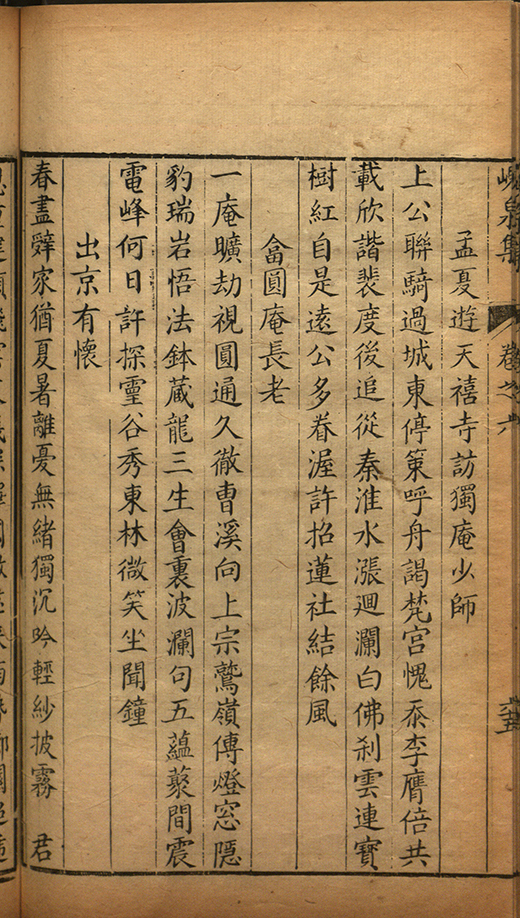 峴泉集
卷之六
六十五
孟夏遊天禧寺訪獨庵少師
上公聯騎過城東停策呼舟謁梵宮愧忝李膺倍共
載欣諧裴度後追從秦淮水漲迴瀾白佛刹雲連寶
樹紅自是遠公多眷渥許招蓮社結餘風
畣圓庵長老
一庵曠劫視圓通久徹曹溪向上宗鷲嶺傳燈窓隱
豹瑞岩悟法鉢藏龍三生會裏波瀾句五蘊藂間震
電峰何日許探靈谷秀東林微笑坐聞鐘
出京有懷
春盡辭家猶夏暑離憂無緒獨沉吟輕紗披霧 君